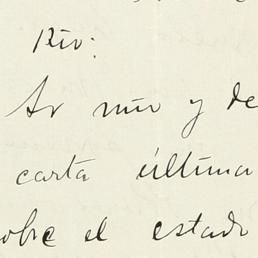 Río:
Sr mío y de
carta última
obre el estado